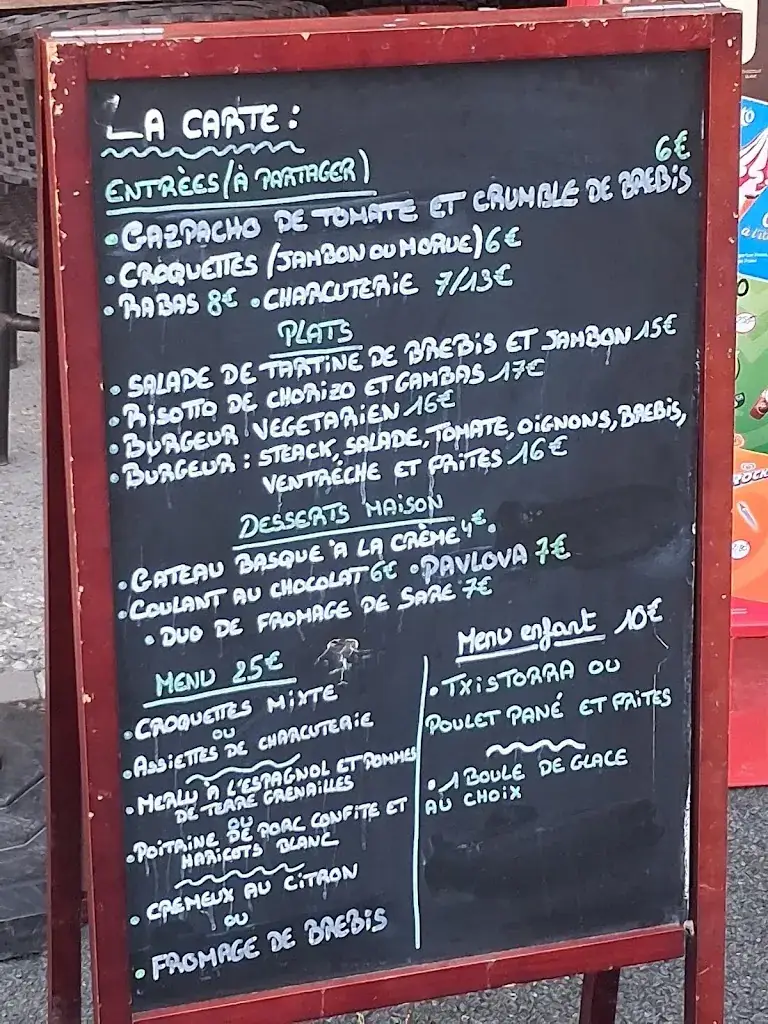 LA CARTE :
ENTRÈES (À PARTAGER)
6€
• GAZPACHO DE TOMATE ET CRUMBLE DE BREBIS
• CROQUETTES (JAMBON OU MORUE) 6€
• RABAS 8€ • CHARCUTERIE 7/13€
PLATS
• SALADE DE TARTINE DE BREBIS ET JAMBON 15€
• RISOTTO DE CHORIZO ET GAMBAS 17€
• BURGEUR VEGETARIEN 16€
• BURGEUR : STEACK, SALADE, TOMATE, OIGNONS, BREBIS,
VENTRÉCHE ET FRITES 16€
DESSERTS MAISON
• GATEAU BASQUE À LA CRÈME 4€.
• COULANT AU CHOCOLAT 6€ • PAVLOVA 7€
• DUO DE FROMAGE DE SARE 7€
MENU 25€
• CROQUETTES MIXTE
OU
• ASSIETTES DE CHARCUTERIE
• MERLU A L'ESPAGNOL ET POMMES
DE TERRE GRENAILLES
OU
• POITRINE DE PORC CONFITE ET
HARICOTS BLANC
• CREMEUX AU CITRON
OU
• FROMAGE DE BREBIS
Menu enfant 10€
• TXISTORRA OU
POULET PANÉ ET FRITES
• 1 BOULE DE GLACE
AU CHOIX